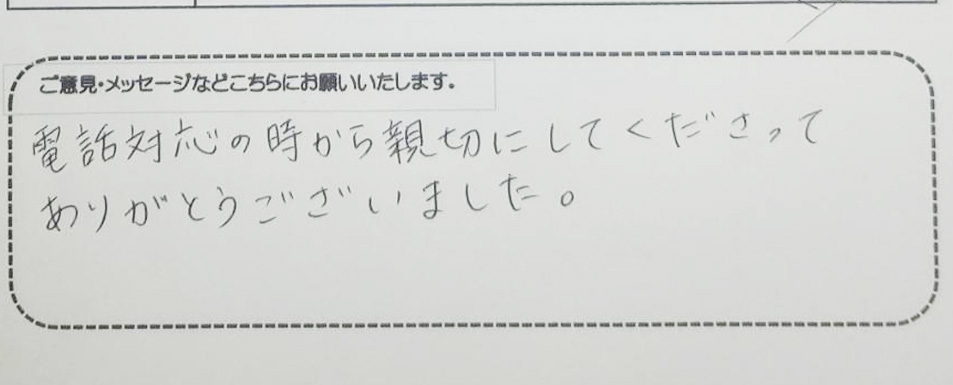 ご意見・メッセージなどこちらにお願いいたします。
電話対応の時から親切にしてくださって
ありがとうございました。